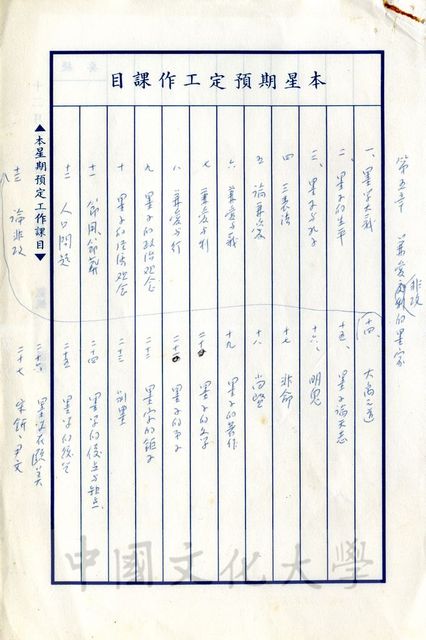 本星期預定工作課目
第五章 兼愛非攻的墨家
一、墨學大義
二、墨子的生平
三、墨子与孔子
四 三表法
五 論兼愛
六 兼愛与義
七 兼愛与利
八 兼愛与行
九 墨子的政治观念
十 墨子的经济观念
十一 節用、節葬
十二 人口問題
十三 論非攻
十四、大禹之道
十五、墨子論天志
十六、明鬼
十七 非命
十八、尚賢
十九 墨子的著作
二十 墨子的文学
二十一 墨子的弟子
二十二 墨家的鉅子
二十三 別墨
二十四 墨学的優点与缺点
二十五 墨学的
二十六 墨学在
二十七 宋鈃、尹文
▲本星期預定工作課目▼
中國文化大學